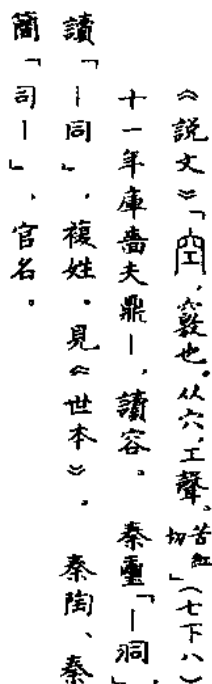 《説文》「空,竅也。从穴,工聲。苦紅切」(七下八)
十一年庫嗇夫鼎｜,讀容。　秦璽「｜洞」,
讀「｜同」,複姓。見《世本》。　秦陶、秦
簡「司｜」,官名。